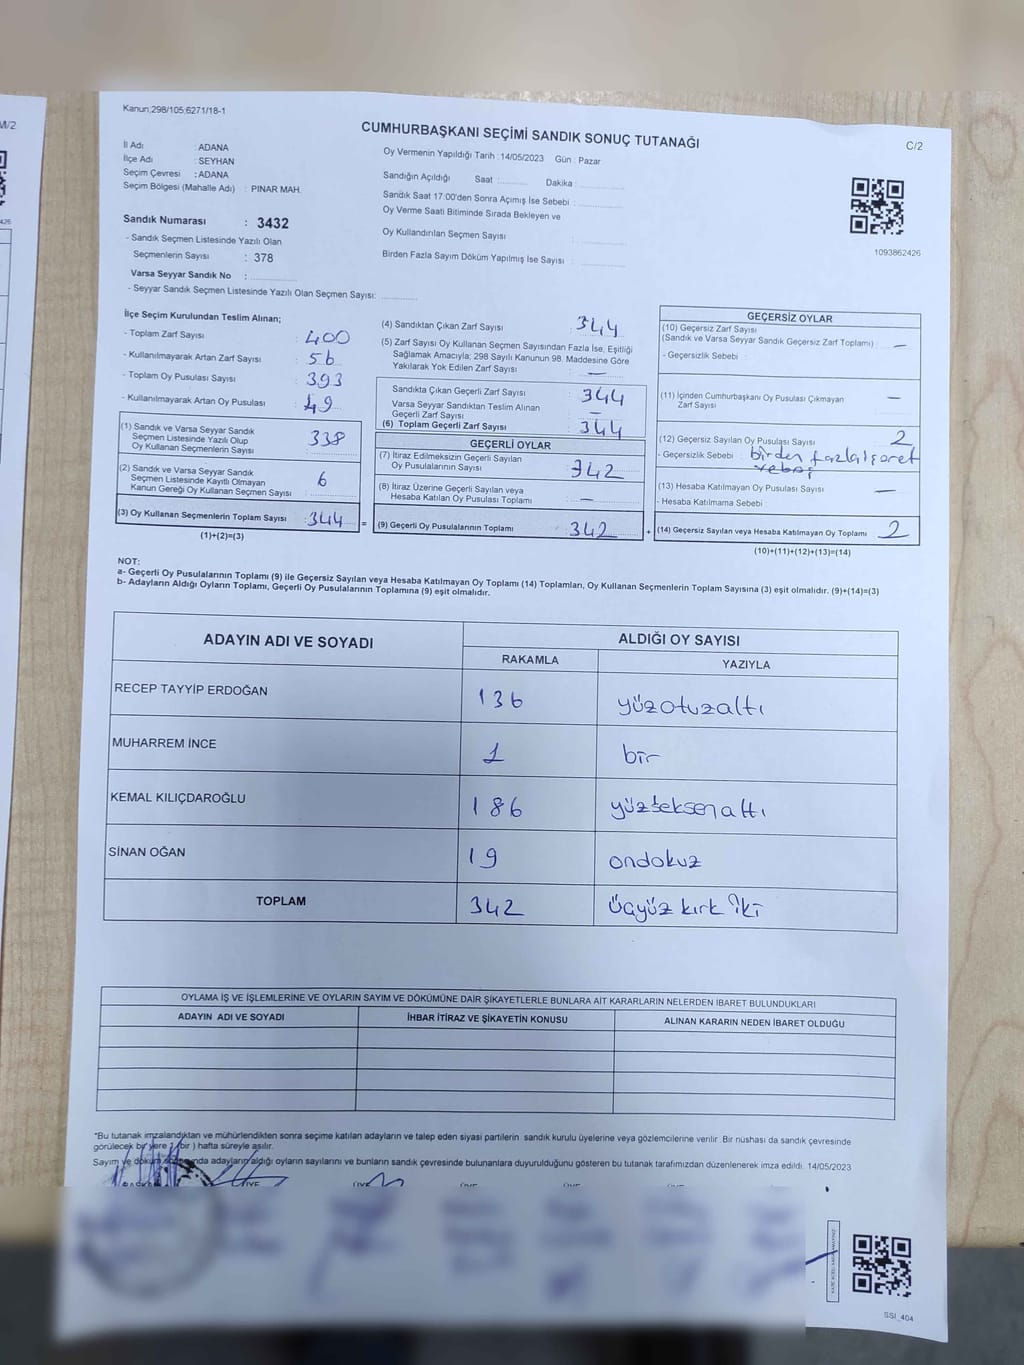 M/2
Kanun;298/105;6271/18-1
CUMHURBAŞKANI SEÇİMİ SANDIK SONUÇ TUTANAĞI
C/2
İl Adı : ADANA
İlçe Adı : SEYHAN
Seçim Çevresi : ADANA
Seçim Bölgesi (Mahalle Adı) : PINAR MAH.
Oy Vermenin Yapıldığı Tarih : 14/05/2023 Gün : Pazar
Sandığın Açıldığı Saat : Dakika :
Sandık Saat 17:00'den Sonra Açımış İse Sebebi :
Oy Verme Saati Bitiminde Sırada Bekleyen ve
Oy Kullandırılan Seçmen Sayısı :
Birden Fazla Sayım Döküm Yapılmış İse Sayısı :
1093862426
Sandık Numarası : 3432
- Sandık Seçmen Listesinde Yazılı Olan
Seçmenlerin Sayısı : 378
Varsa Seyyar Sandık No :
- Seyyar Sandık Seçmen Listesinde Yazılı Olan Seçmen Sayısı:
İlçe Seçim Kurulundan Teslim Alınan;
- Toplam Zarf Sayısı : 400
- Kullanılmayarak Artan Zarf Sayısı : 56
- Toplam Oy Pusulası Sayısı : 393
- Kullanılmayarak Artan Oy Pusulası : 49
(1) Sandık ve Varsa Seyyar Sandık
Seçmen Listesinde Yazılı Olup
Oy Kullanan Seçmenlerin Sayısı : 338
(2) Sandık ve Varsa Seyyar Sandık
Seçmen Listesinde Kayıtlı Olmayan
Kanun Gereği Oy Kullanan Seçmen Sayısı : 6
(3) Oy Kullanan Seçmenlerin Toplam Sayısı : 344 =
(1)+(2)=(3)
(4) Sandıktan Çıkan Zarf Sayısı : 344
(5) Zarf Sayısı Oy Kullanan Seçmen Sayısından Fazla İse, Eşitliği
Sağlamak Amacıyla; 298 Sayılı Kanunun 98. Maddesine Göre
Yakılarak Yok Edilen Zarf Sayısı : —
Sandıkta Çıkan Geçerli Zarf Sayısı : 344
Varsa Seyyar Sandıktan Teslim Alınan
Geçerli Zarf Sayısı : —
(6) Toplam Geçerli Zarf Sayısı : 344
GEÇERLİ OYLAR
(7) İtiraz Edilmeksizin Geçerli Sayılan
Oy Pusulalarının Sayısı : 342
(8) İtiraz Üzerine Geçerli Sayılan veya
Hesaba Katılan Oy Pusulası Toplamı : —
(9) Geçerli Oy Pusulalarının Toplamı : 342 +
GEÇERSİZ OYLAR
(10) Geçersiz Zarf Sayısı
(Sandık ve Varsa Seyyar Sandık Geçersiz Zarf Toplamı) : —
- Geçersizlik Sebebi :
(11) İçinden Cumhurbaşkanı Oy Pusulası Çıkmayan
Zarf Sayısı : —
(12) Geçersiz Sayılan Oy Pusulası Sayısı : 2
- Geçersizlik Sebebi : birden fazla işaret
(13) Hesaba Katılmayan Oy Pusulası Sayısı : —
- Hesaba Katılmama Sebebi :
(14) Geçersiz Sayılan veya Hesaba Katılmayan Oy Toplamı : 2
(10)+(11)+(12)+(13)=(14)
NOT:
a- Geçerli Oy Pusulalarının Toplamı (9) ile Geçersiz Sayılan veya Hesaba Katılmayan Oy Toplamı (14) Toplamları, Oy Kullanan Seçmenlerin Toplam Sayısına (3) eşit olmalıdır. (9)+(14)=(3)
b- Adayların Aldığı Oyların Toplamı, Geçerli Oy Pusulalarının Toplamına (9) eşit olmalıdır.
ADAYIN ADI VE SOYADI ALDIĞI OY SAYISI
RAKAMLA YAZIYLA
RECEP TAYYİP ERDOĞAN 136 yüzotuzaltı
MUHARREM İNCE 1 bir
KEMAL KILIÇDAROĞLU 186 yüzseksenaltı
SİNAN OĞAN 19 ondokuz
TOPLAM 342 üçyüz kırk iki
OYLAMA İŞ VE İŞLEMLERİNE VE OYLARIN SAYIM VE DÖKÜMÜNE DAİR ŞİKAYETLERLE BUNLARA AİT KARARLARIN NELERDEN İBARET BULUNDUKLARI
ADAYIN ADI VE SOYADI İHBAR İTİRAZ VE ŞİKAYETİN KONUSU ALINAN KARARIN NEDEN İBARET OLDUĞU
"Bu tutanak imzalandıktan ve mühürlendikten sonra seçime katılan adayların ve talep eden siyasi partilerin sandık kurulu üyelerine veya gözlemcilerine verilir. Bir nüshası da sandık çevresinde
görülecek bir yere 1 (bir) hafta süreyle asılır.
Sayım ve döküm sonunda adayların aldığı oyların sayılarını ve bunların sandık çevresinde bulunanlara duyurulduğunu gösteren bu tutanak tarafımızdan düzenlenerek imza edildi. 14/05/2023
SSI_404